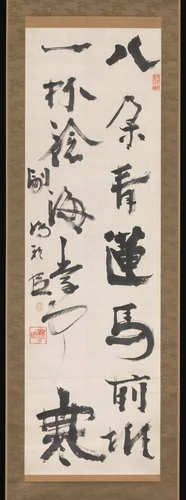 八朶青蓮馬前堆
一杯滄海掌中寒
副島種臣